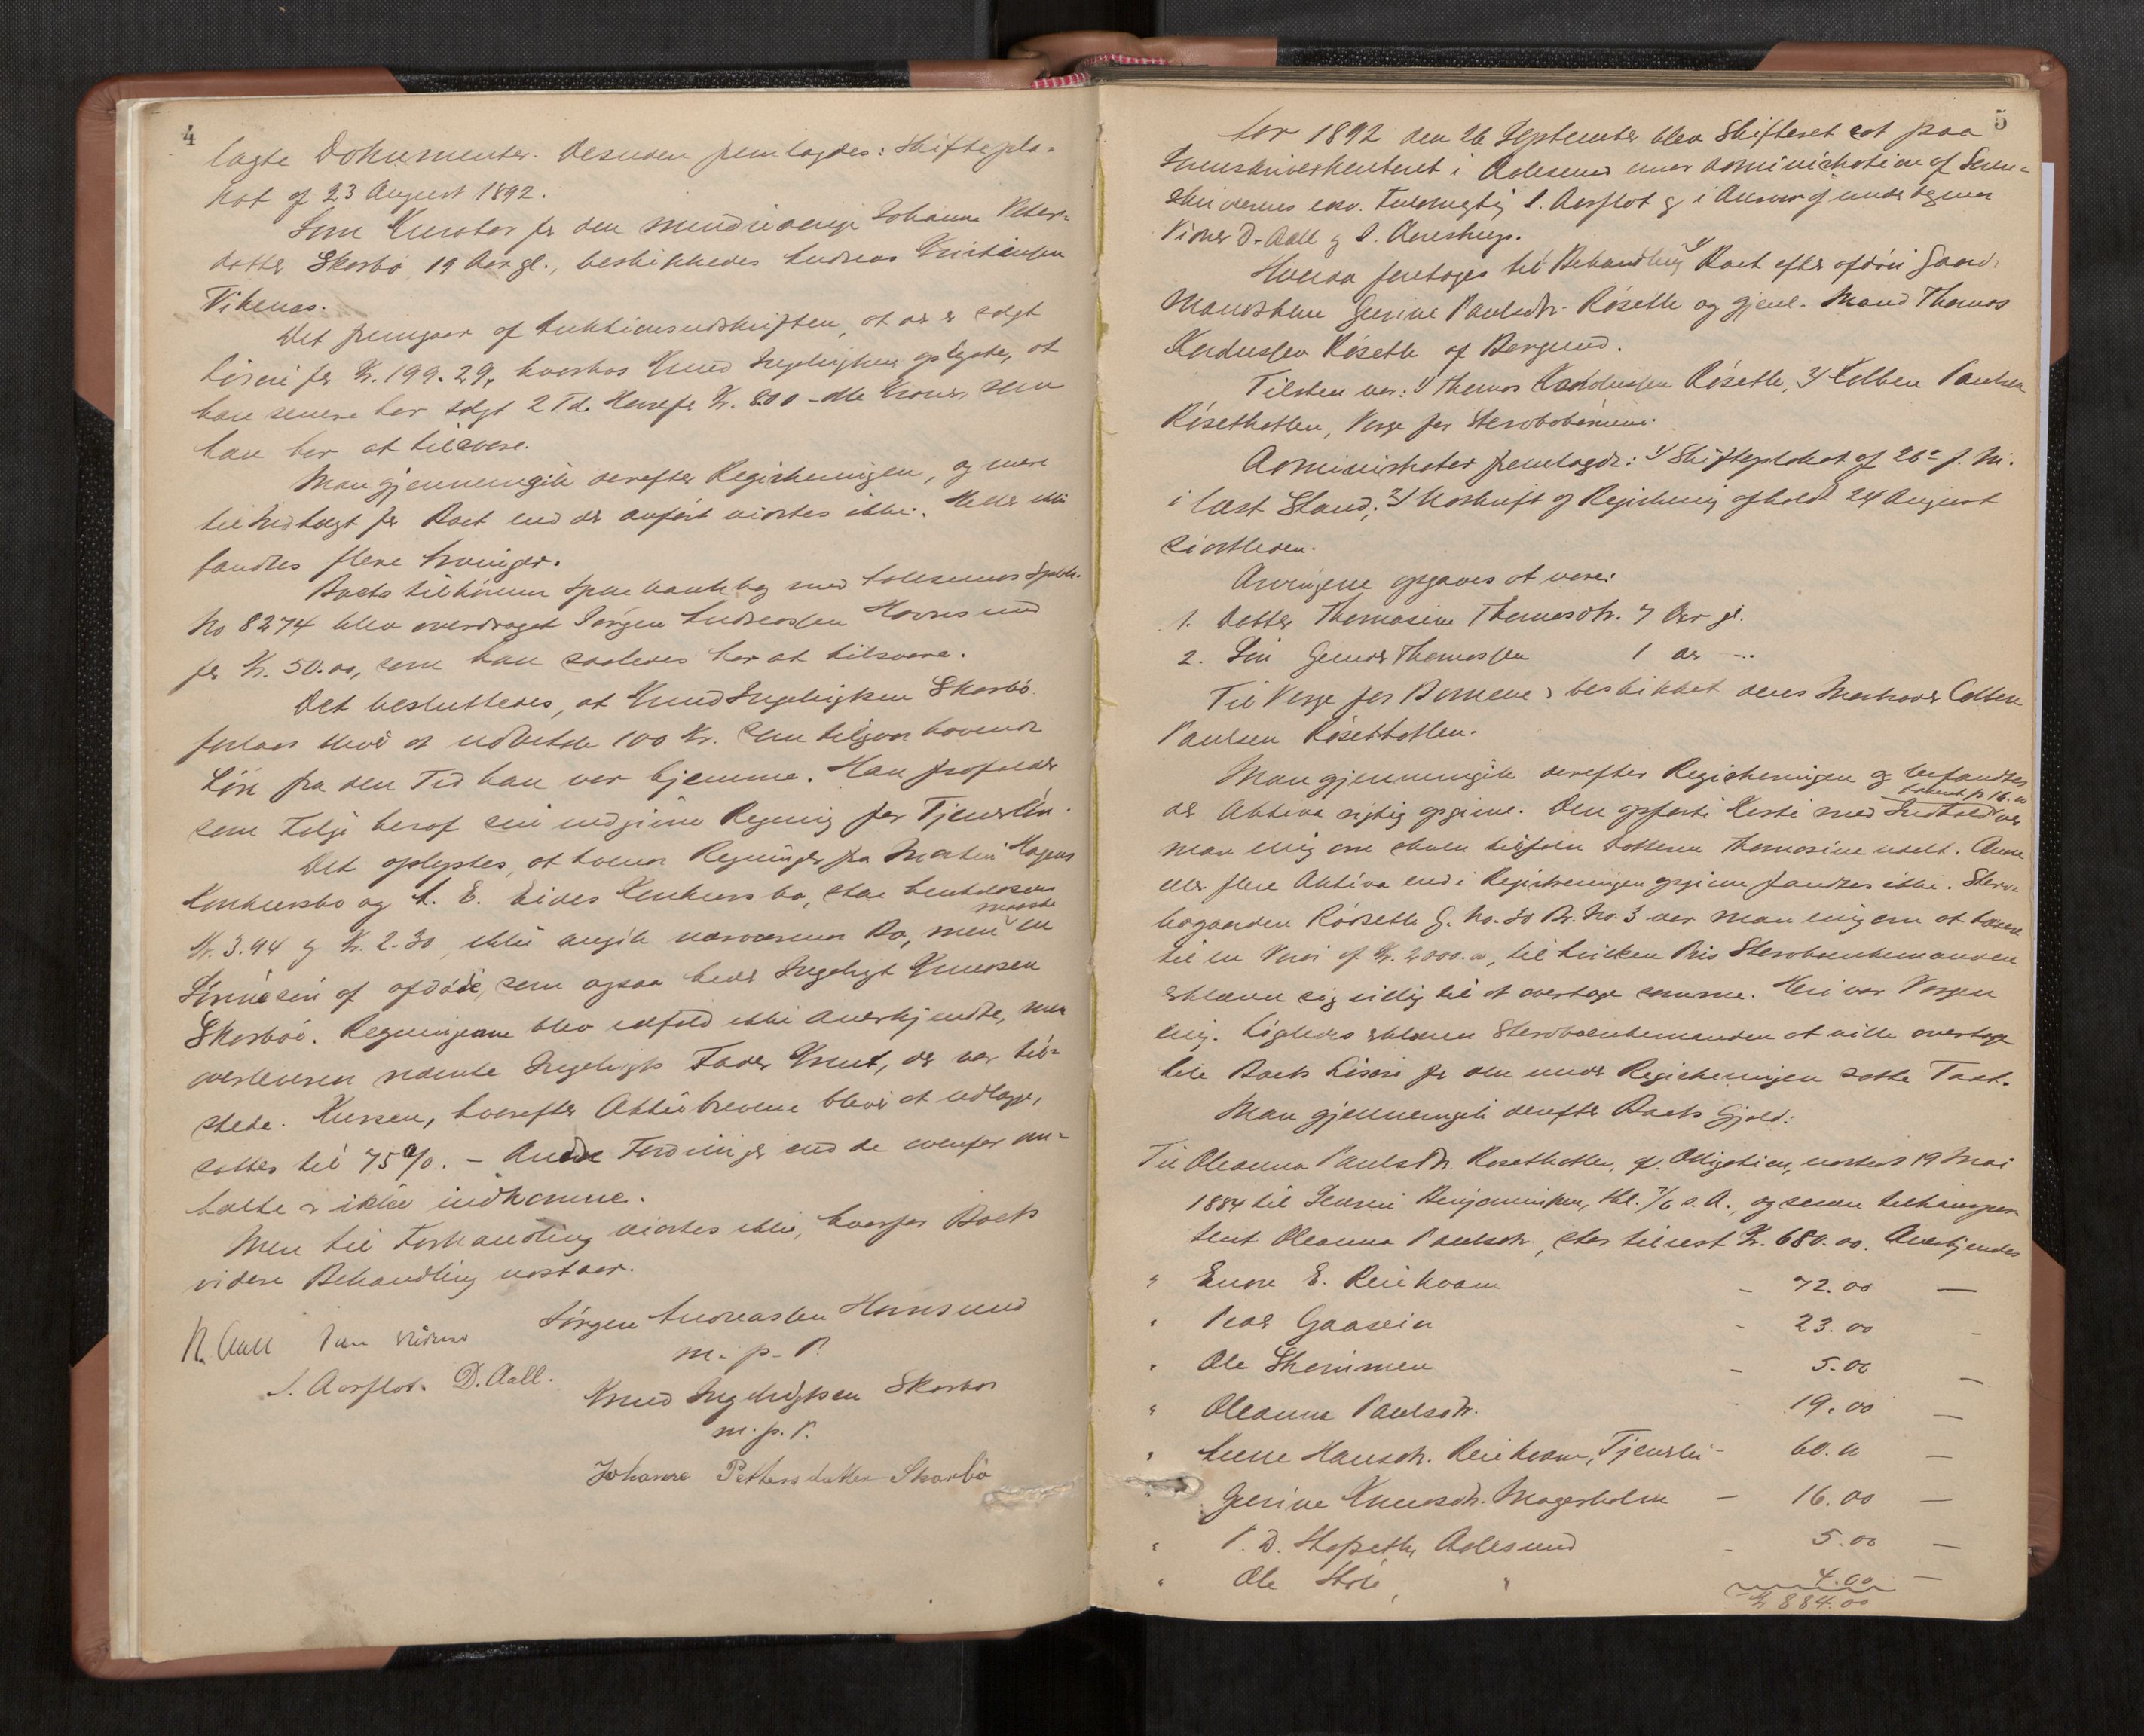 4
lagte Dokumenter. Desuden fremlagdes: Skiftepla-
kat af 23 August 1892.
Som Kurator for den mindreaarige Johanne Peters-
datter Skarbø 19 Aar gl., beskikkedes Andreas Kristiansen
Vikenæs.
Det fremgaar af Auktionsudskriften, at der er solgt
Løsøre for Kr. 199.29, hvorhos Knud Ingebrigtsen oplyste, at
han senere har solgt 2 Td. Havre for Kr. 8.00 – otte Kroner, som
han har at tilsvare.
Man gjennemgik derefter Registreringen, og mere
til Indtægt for Boet end der anført vidstes ikke. Heller ikke
fandtes flere Arvinger.
Boets tilhørende Sparebankbog med Aalesunds Spbk.
No 8274 blev overdraget Jørgen Andreassen Havnsund
for Kr. 50.00, som han saaledes har at tilsvare.
Det besluttedes, at Knud Ingebrigtsen Skarbø
forlods blev at udbetale 100 Kr. som tilgodehavende
Løn fra den Tid han var hjemme. Han frafalder
som Følge heraf sin indgivne Regning for Tjenerløn.
Det oplystes, at tvende Regninger fra Martin Hagens
Konkursbo og A. E. Eides Konkursbo, stor henholdsvis
Kr. 3.94 og Kr. 2.30, ikke angik nærværende Bo, men maaske en
Sønnesøn af afdøde, som ogsaa heder Ingebrigt Knudsen
Skarbø. Regningerne blev ialfald ikke anerkjendte, men
overleveres nævnte Ingebrigts Fader Knut, der var til-
stede. Kursen, hvorefter Aktiebrevene blev at udlægge,
sattes til 75 %. – Andre Fordringer end de ovenfor om-
talte er ikke indkomne.
Mere til Forhandling vidstes ikke, hvorfor Boets
videre Behandling udstaar.
N. Aall
Jørgen Andreassen Havnsund
m. p. P.
S. Aarflot. D. Aall.
Knud Ingebrigtsen Skarbø
m. p. P.
Johanne Pettersdatter Skarbø
5
Aar 1892 den 26 September blev Skifteret sat paa
Sorenskriverkontoret i Aalesund under Administration af Soren-
skriverens edsv. Fuldmægtig S. Aarflot og i Overvær af undertegnede
Vidner D. Aall og S. Aarestrup.
Hvorda foretages til Behandling Boet efter afdøde Gaard-
mandskone Gurine Paulsdtr. Røseth og gjenl. Mand Thomas
Knudussen Røseth af Borgund.
Tilstede var: 1/ Thomas Røseth, 2/ Kolben Paulsen
Røsethatlen, Verge for Stervbobørnene.
Administrator fremlagde: 1/ Skifteplakat af 26de f. M.
i læst Stand; 2/ Udskrift af Registrering afholdt 24 August
sidstleden.
Arvingerne opgaves at være:
1. Datter Thomasine Thomasdtr. 7 Aar gl.
2. Søn Gunder Thomassen 1 Aar –"–
Til Verge for Børnene er beskikket deres Morbroder Colben
Paulsen Røsethatlen.
Man gjennemgik derefter Registreringen og befandtes
der Aktiva rigtig opgivne. Den opførte Kiste med Indhold takseret for 16.00 var
man enig om skulde tilfalde Datteren Thomasine udelt. Andre
eller flere Aktiva end i Registreringen opgivne fandtes ikke. Sterv-
bogaarden Røseth G. No. 30 Br. No. 3 var man enig om at taxere
til en Værdi af Kr. 2000.00, til hvilken Pris Stervboenkemanden
erklærede sig villig til at overtage samme. Heri var Vergen
enig. Ligeledes erklærede Stervboenkemanden at ville overtage
hele Boets Løsøre for den under Registreringen satte Taxt.
Man gjennemgik derefter Boets Gjæld:
Til Oleanna Paulsdtr. Røsethatlen, efter Obligation, udstedt 19 Mai
1884 til Severin Benjaminsen, thl. 7/6 s. A., og senere
tent Oleanna Paulsdtr., stor tilrest Kr. 680.00. Anerkjendes
" Enon E. Reitkvam – 72.00 —
" Peder Gaasein - 23.00 -
" Ole Slemmen – 5.00 –
" Oleanna Paulsdtr. 19.00 —
" Anne Hansdtr. Reitkvam, Tjenerløn – 60.00 —
" Gurine Knudsdtr. Magerholm – 16.00 —
" P. D. Stafseth, Aalesund - 5.00 —
" Ole " 4.00 —
Kr 884.00